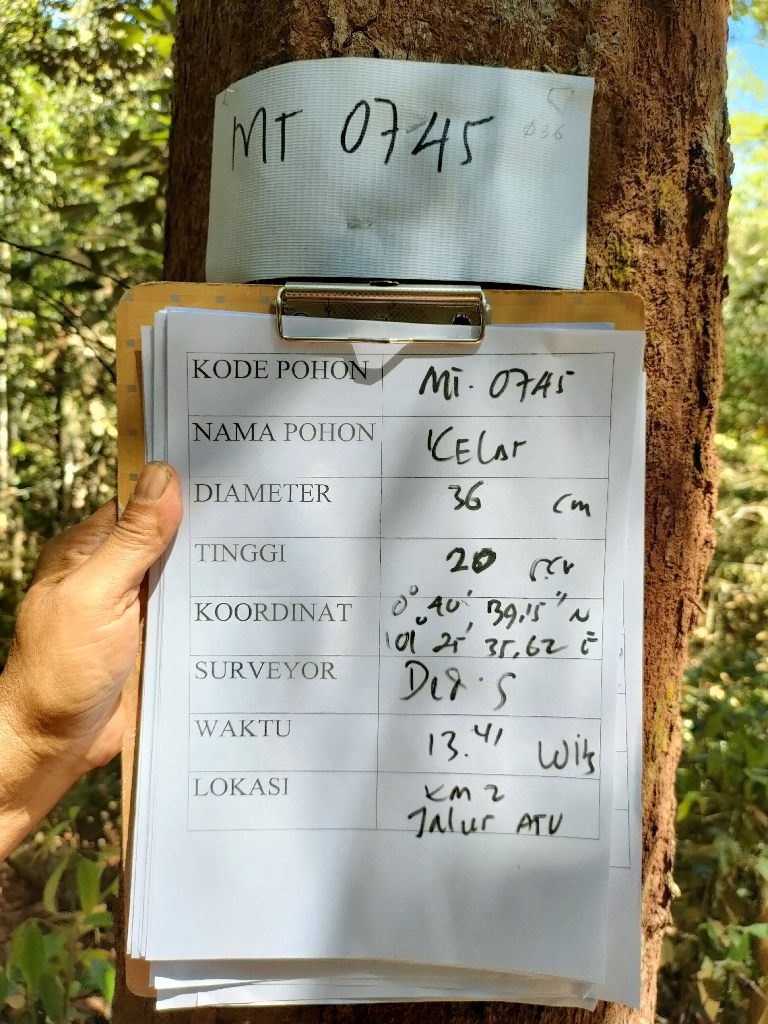 MT 0745
Ø36
KODE POHON MT. 0745
NAMA POHON KELAT
DIAMETER 36 cm
TINGGI 20
KOORDINAT 0° 40' 39,15" N
101° 25' 35,62 E
SURVEYOR
WAKTU 13.41
LOKASI KM 2
JALUR ATV